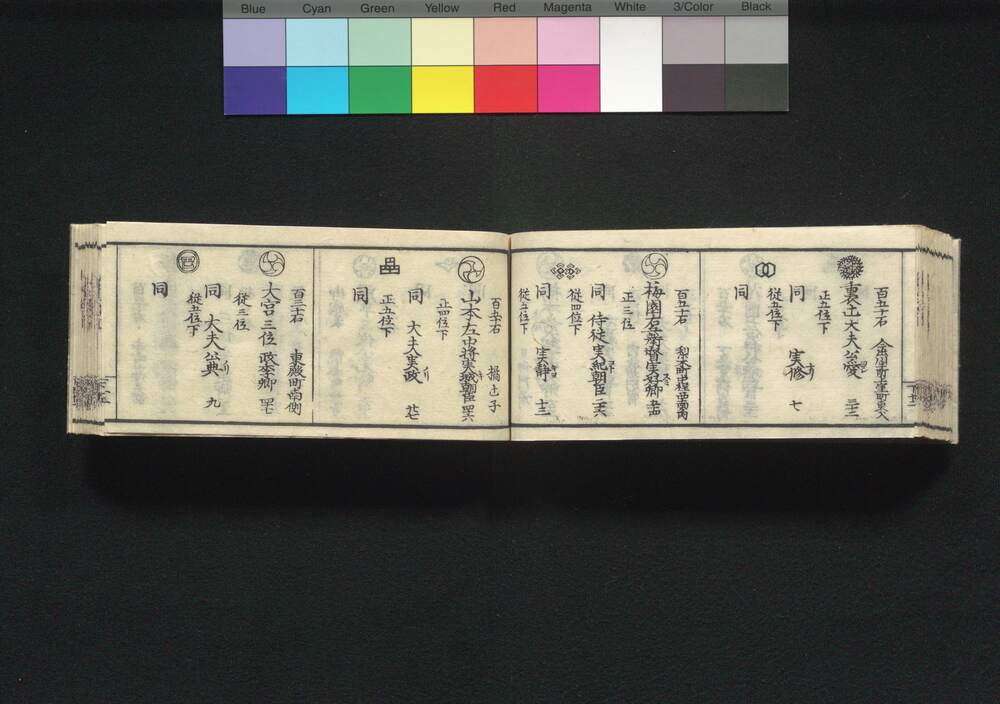 Blue Cyan Green Yellow Red Magenta White 3/Color Black
百五十石
正五位下
裏辻大夫公愛 三十三
同 実修 七
従五位下
同
百五十石
梅園左兵衛督実好卿
正三位
同 侍従実紀朝臣
従四位下
同 実静 十三
従五位下
百五十石
山本左中将実城朝臣
正四位下
同 大夫実政
正五位下
同
百三十石 東殿町南側
大宮三位政季卿
従三位
同 大夫公典 九
従五位下
同